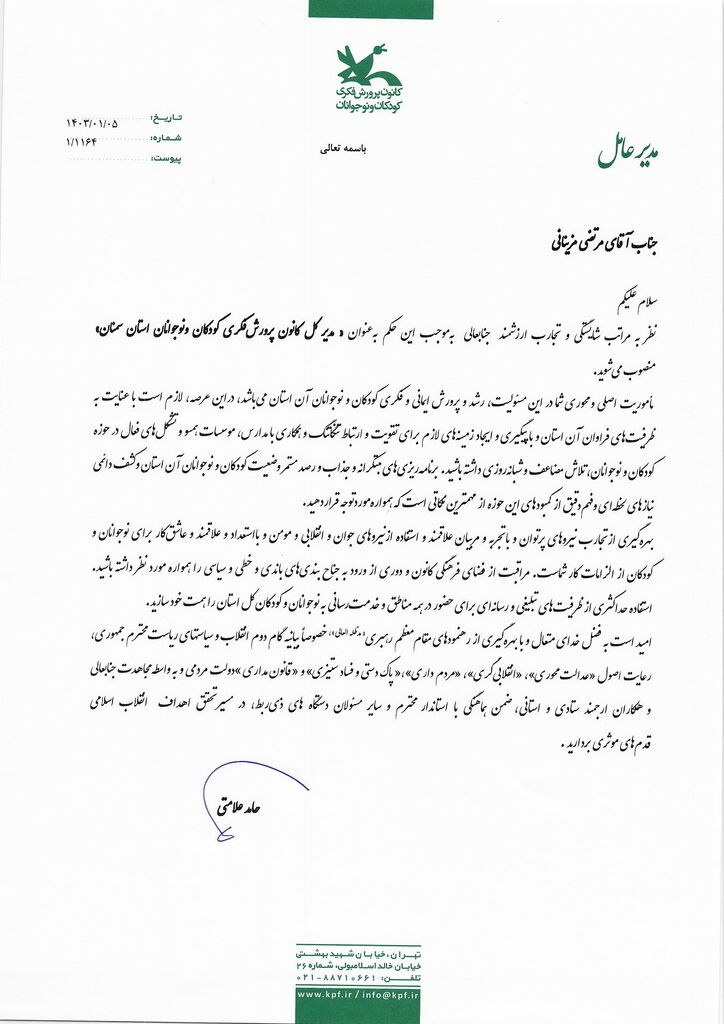 کانون پرورش فکری
کودکان و نوجوانان
تاریخ: ۱۴۰۳/۰۱/۰۵
شماره: ۱/۱۱۶۴
پیوست:
باسمه تعالی
مدیر عامل
جناب آقای مرتضی مزینانی
سلام علیکم
نظر به مراتب شایستگی و تجارب ارزشمند جنابعالی به‌موجب این حکم به‌عنوان « مدیر کل کانون پرورش فکری کودکان و نوجوانان استان سمنان»
منصوب می‌شوید.
مأموریت اصلی و محوری شما در این مسئولیت، رشد و پرورش ایمانی و فکری کودکان و نوجوانان آن استان می‌باشد، در این عرصه، لازم است با عنایت به
ظرفیت‌های فراوان آن استان و با پیگیری و ایجاد زمینه‌های لازم برای تقویت و ارتباط تنگاتنگ و همکاری با مدارس، موسسات همسو و تشکل‌های فعال در حوزه
کودکان و نوجوانان، تلاش مضاعف و شبانه‌روزی داشته باشید. برنامه‌ریزی‌های مبتکرانه و جذاب و رصد مستمر وضعیت کودکان و نوجوانان آن استان و کشف دائمی
نیازهای لحظه‌ای و فهم دقیق از کمبودهای این حوزه از مهمترین نکاتی است که همواره مورد توجه قرار دهید.
بهره‌گیری از تجارب نیروهای پرتوان و باتجربه و مربیان علاقمند و استفاده از نیروهای جوان و انقلابی و مومن و بااستعداد و علاقمند و عاشق کار برای نوجوانان و
کودکان از الزامات کار شماست. مراقبت از فضای فرهنگی کانون و دوری از ورود به جناح بندی‌های باندی و خطی و سیاسی را همواره مورد نظر داشته باشید.
استفاده حداکثری از ظرفیت‌های تبلیغی و رسانه‌ای برای حضور در همه مناطق و خدمت‌رسانی به نوجوانان و کودکان کل استان را همت خود سازید.
امید است به فضل خدای متعال و با بهره‌گیری از رهنمودهای مقام معظم رهبری(مدظله العالی)، خصوصاً بیانیه گام دوم انقلاب و سیاستهای ریاست محترم جمهوری،
رعایت اصول «عدالت محوری»، «انقلابی‌گری»، «مردم داری»،«پاک دستی و فساد ستیزی» و «قانون مداری »دولت مردمی و به واسطه مجاهدت جنابعالی
و همکاران ارجمند ستادی و استانی، ضمن هماهنگی با استاندار محترم و سایر مسئولان دستگاه های ذی‌ربط، در مسیر تحقق اهداف انقلاب اسلامی
قدم‌های موثری بردارید .
حامد علامتی
تهران، خیابان شهید بهشتی
خیابان خالد اسلامبولی، شماره ۲۶
تلفن: ۰۲۱-۸۸۷۱۰۶۶۱
www.kpf.ir / info@kpf.ir